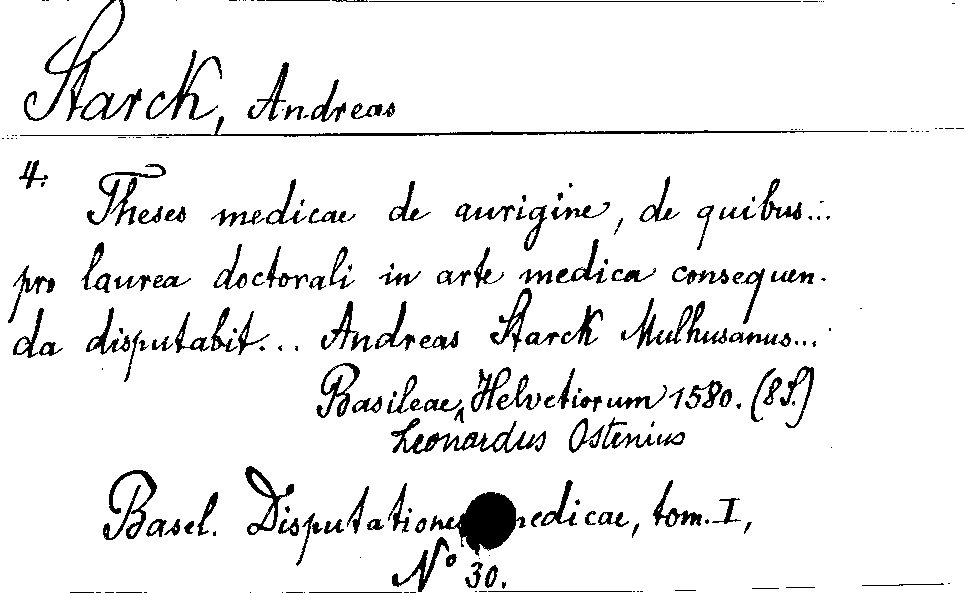 Starck, Andreas
4.
Theses medicae de aurigine, de quibus...
pro laurea doctorali in arte medica consequen-
da disputabit... Andreas Starck Mulhusanus...
Basileae, Helvetiorum 1580. (8 S.)
Leonardus Ostenius
Basel. Disputationes medicae, tom. I,
No 30.